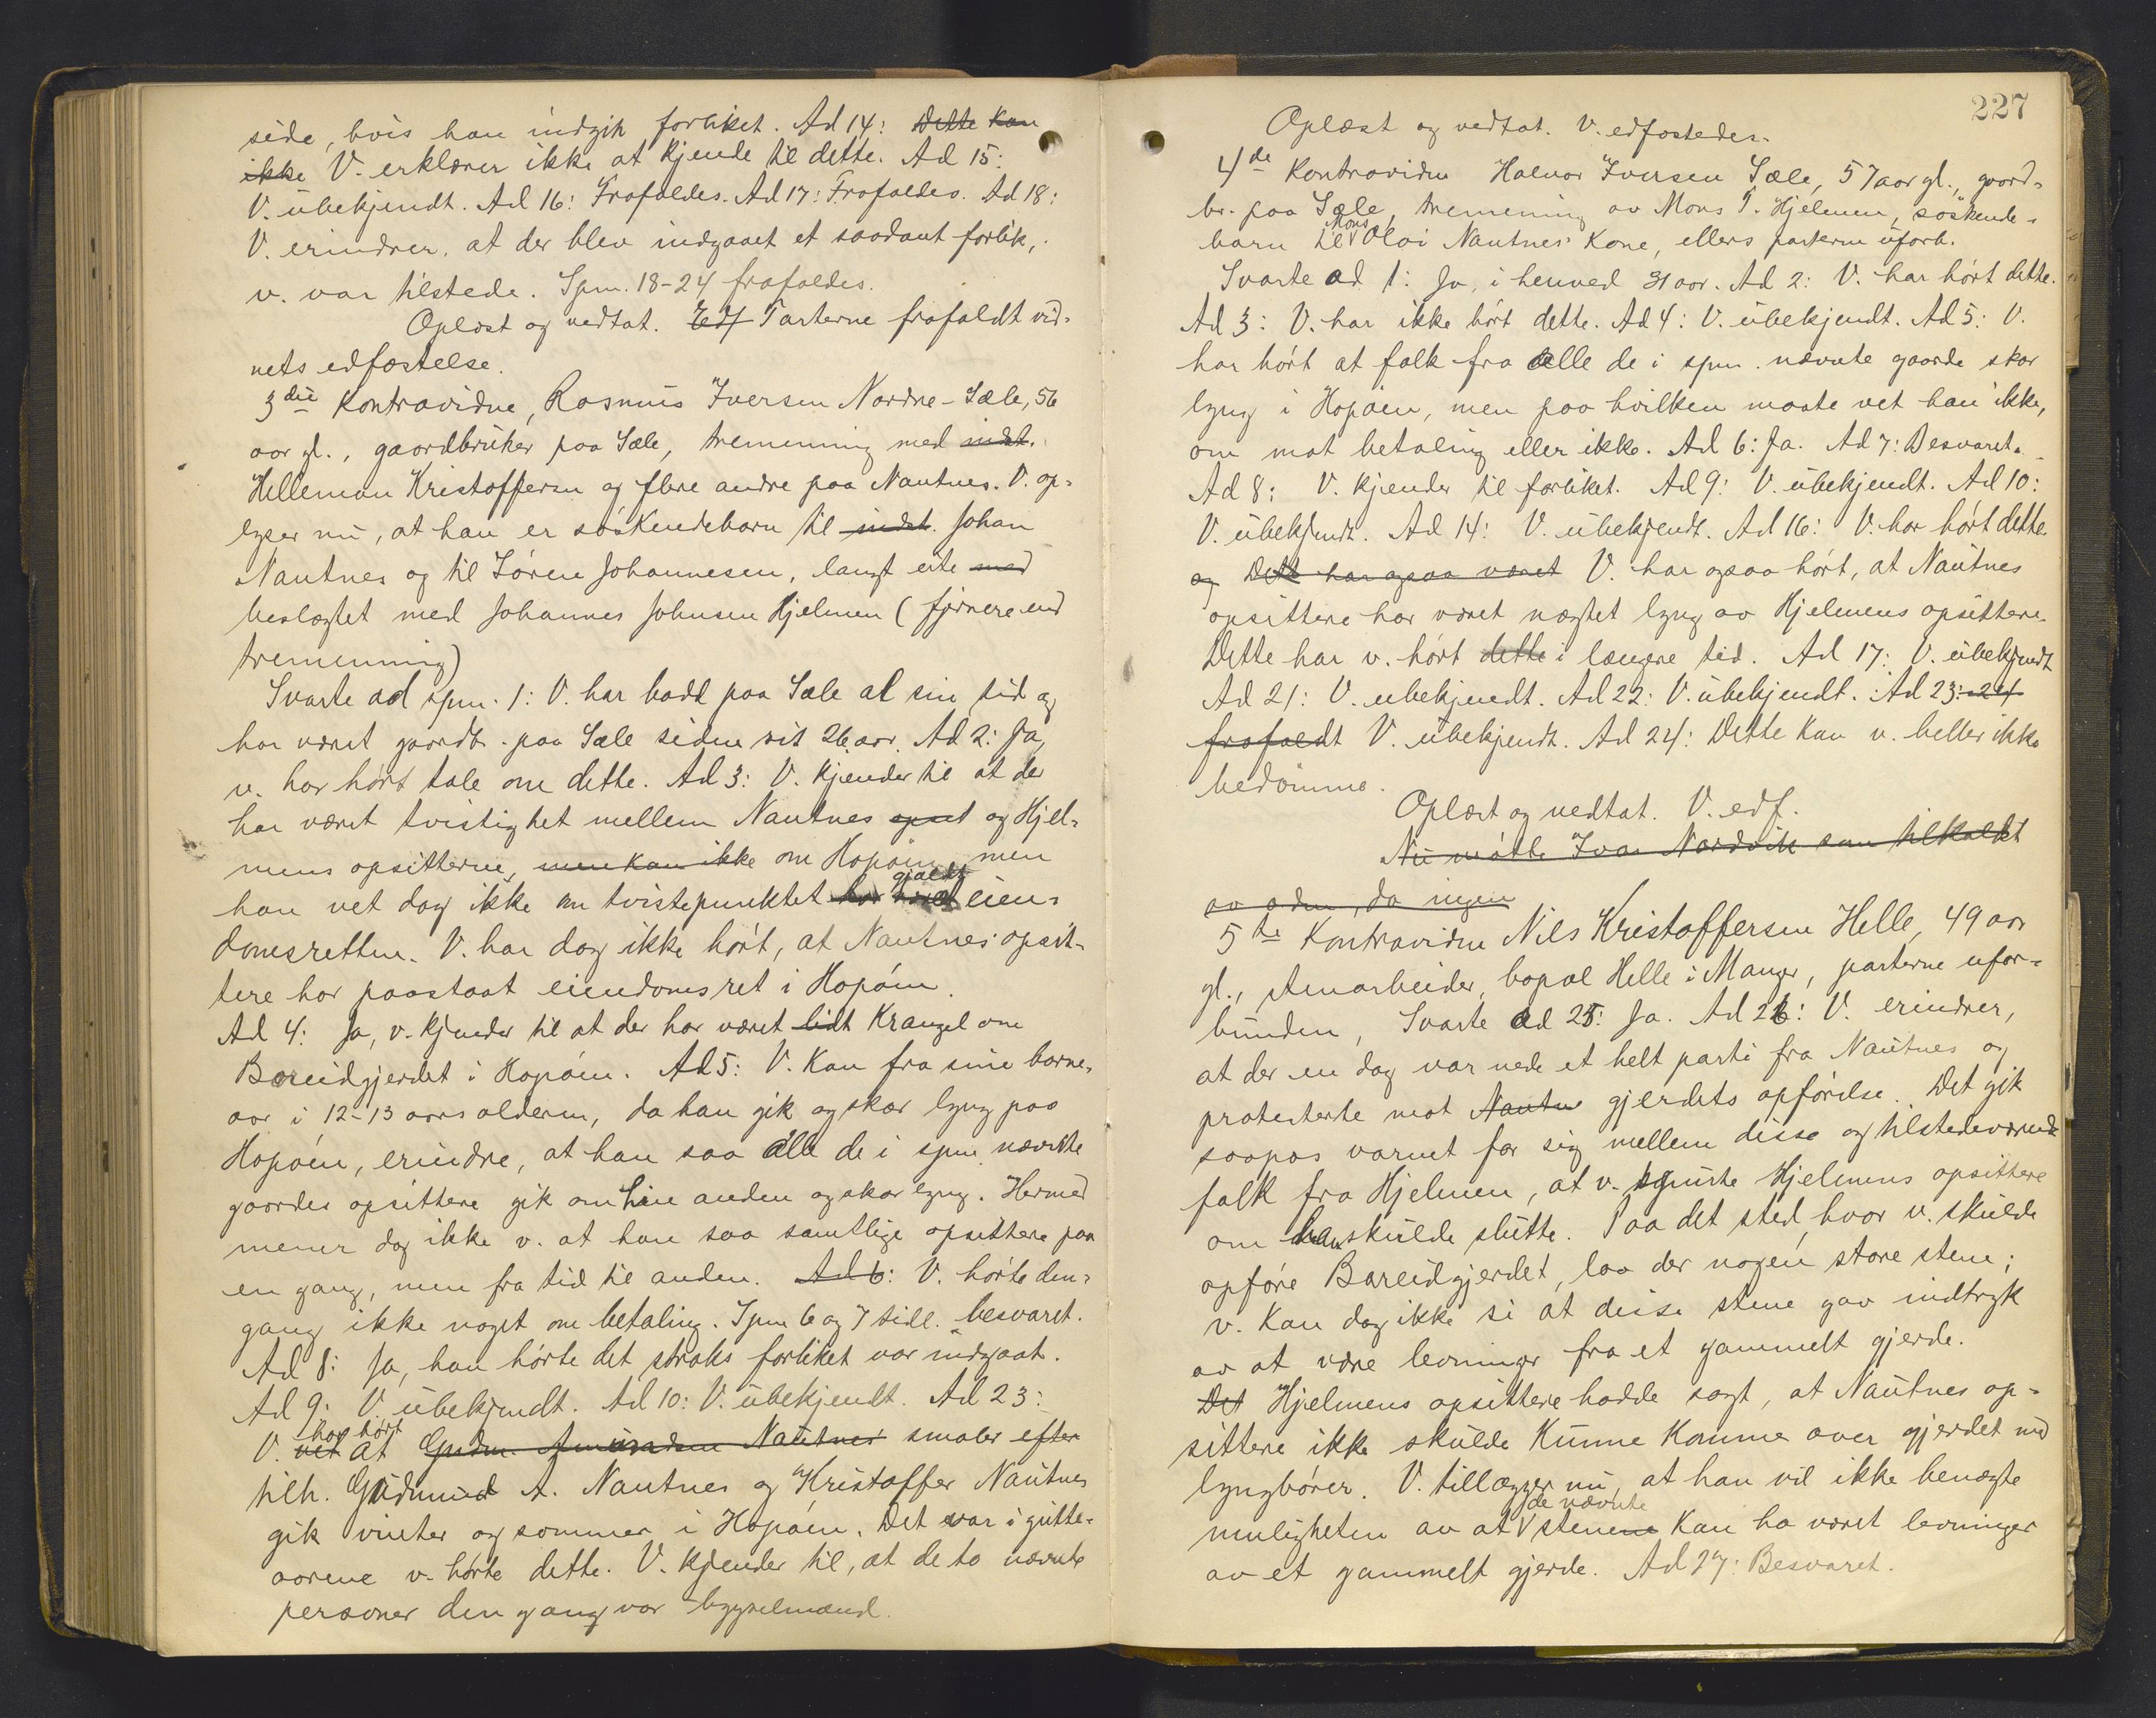 side, hvis han indgik forliket. Ad 14: Dette kan
ikke V. erklærer ikke at kjende til dette. Ad 15:
V. ubekjendt. Ad 16: Frafaldes. Ad 17: Frafaldes. Ad 18:
V. erindrer, at der blev indgaaet et saadant forlik,
v. var tilstede. Spm. 18-24 frafaldes.
Oplæst og vedtat. Edf Parterne frafaldt vid-
nets edfæstelse.
3die Kontravidne, Rasmus Iversen Nordre-Sæle, 56
aar gl., gaardbruker paa Sæle, tremenning med indst.
Helleman Kristoffersen og flere andre paa Nautnes. V. op-
lyser nu, at han er söskendebarn til indst. Johan
Nautnes og til Sören Johannesen, langt ute med
beslægtet med Johannes Johnsen Hjelmen (fjernere end
tremenning)
Svarte ad spm. 1: V. har bodd paa Sæle al sin tid og
har været gaardb. paa Sæle siden sit 26. aar. Ad 2: Ja,
v. har hört tale om dette. Ad 3: V. kjender til at der
har været tvistighet mellem Nautnes opsit og Hjel-
mens opsitterne, men kan ikke om Hopöen, men
han vet dog ikke om tvistepunktet har været gjaldt eien-
domsretten. V. har dog ikke hört, at Nautnes opsit-
tere har paastaat eiendomsret i Hopöen.
Ad 4: Ja, v. kjender til at der har været lidt krangel om
Bareidgjerdet i Hopöen. Ad 5: V. kan fra sine barne-
aar i 12-13 aars alderen, da han gik og skar lyng paa
Hopöen, erindre, at han saa alle de i spm. nævnte
gaardes opsittere gik om hin anden og skar lyng. Hermed
mener dog ikke v. at han saa samtlige opsittere paa
en gang, men fra tid til anden. Ad 6: V. hörte den-
gang ikke noget om betaling. Spm 6 og 7 tidl. besvaret.
Ad 8: Ja, han hörte det straks forliket var indgaat.
Ad 9: V. ubekjendt. Ad 10: V. ubekjendt. Ad 23:
V. vet har hört at Gudm. Amundsen Nautnes smaler efter
tilh. Gudmund A. Nautnes og Kristoffer Nautnes
gik vinter og sommer i Hopöen. Det var i gutte-
aarene v. hörte dette. V. kjender til, at de to nævnte
personer den gang var bygselmænd.
227
Oplæst og vedtat. V. edfæstedes.
4de Kontravidne Halvor Iversen Sæle, 57 aar gl., gaard-
br. paa Sæle, tremenning av Mons T. Hjelmen, söskende-
barn til Mons Olai Nautnes' kone, ellers parterne uforb.
Svarte ad 1: Ja, i henved 31 aar. Ad 2: V. har hört dette.
Ad 3: V. har ikke hört dette. Ad 4: V. ubekjendt. Ad 5: V.
har hört at folk fra alle de i spm. nævnte gaarde skar
lyng i Hopöen, men paa hvilken maate vet han ikke,
om mot betaling eller ikke. Ad 6: Ja. Ad 7: Besvaret.
Ad 8: V. kjender til forliket. Ad 9: V. ubekjendt. Ad 10:
V. ubekjendt. Ad 14: V. ubekjendt. Ad 16: V. har hört dette
og Dette har ogsaa været V. har ogsaa hört, at Nautnes
opsittere har været nægtet lyng av Hjelmens opsittere.
Dette har v. hört dette i længere tid. Ad 17: V. ubekjendt
Ad 21: V. ubekjendt. Ad 22: V. ubekjendt. Ad 23: -24
frafaldt V. ubekjendt. Ad 24: Dette kan v. heller ikke
bedömme.
Oplæst og vedtat. V. edf.
Nu mötte Ivar Nordvik som tilkaldt
da ingen
5te Kontravidne Nils Kristoffersen Helle, 49 aar
gl., stenarbeider, bopæl Helle i Manger, parterne ufor-
bunden, Svarte ad 25: Ja. Ad 26: V. erindrer,
at der en dag var nede et helt parti fra Nautnes og
protesterte mot Nautne gjerdets opförelse. Det gik
saapas varmt for sig mellem disse og tilstedeværende
folk fra Hjelmen, at v. spurte Hjelmens opsittere
om han skulde slutte. Paa det sted, hvor v. skulde
opföre Bareidgjerdet, laa der nogen store stene;
v. kan dog ikke si at disse stene gav indtryk
av at være levninger fra et gammelt gjerde.
Det Hjelmens opsittere hadde sagt, at Nautnes op-
sittere ikke skulde kunne komme over gjerdet med
lyngbörer. V. tillægger nu, at han vil ikke benægte
muligheten av at de nævnte stenene kan ha været levninger
av et gammelt gjerde. Ad 27: Besvaret.